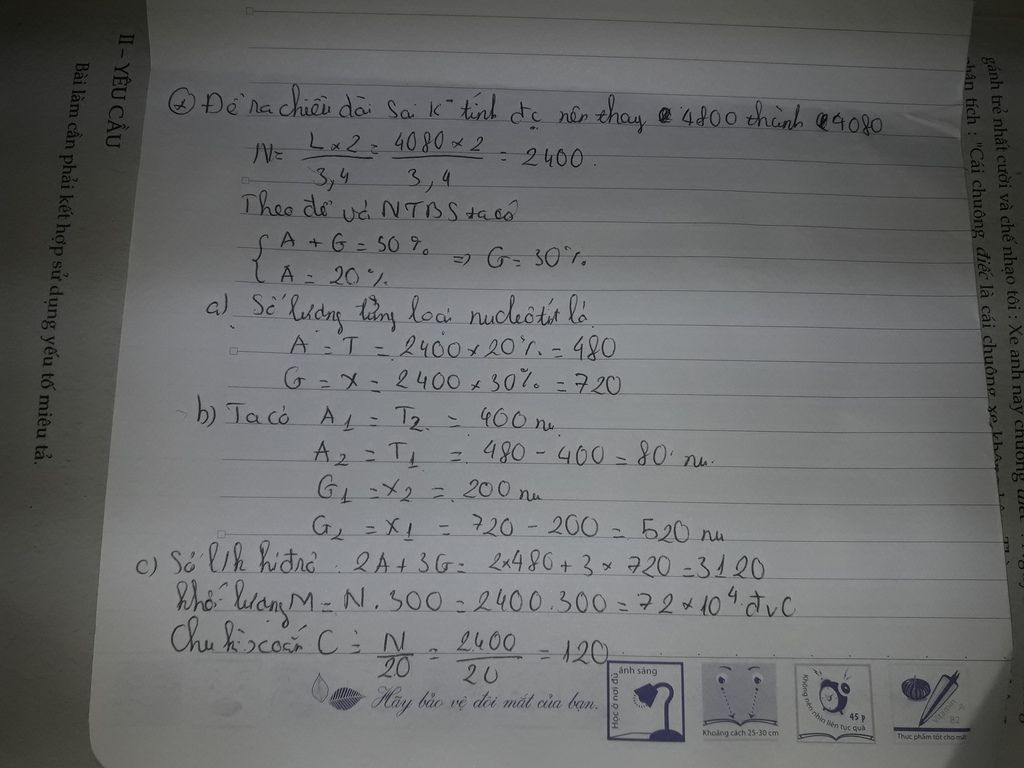 * Đề ra chiều dài sai k tính đc nên thay 4800 thành 4080
N = L × 2 / 3,4 = 4080 × 2 / 3,4 = 2400.
Theo đề và NTBS ta có
{ A + G = 50%
A = 20% => G = 30%
a) Số lượng từng loại nuclêôtit là
A = T = 2400 × 20% = 480
G = X = 2400 × 30% = 720
b) Ta có A1 = T2 = 400 nu
A2 = T1 = 480 - 400 = 80 nu.
G1 = X2 = 200 nu
G2 = X1 = 720 - 200 = 520 nu
c) Số l/k hiđrô: 2A + 3G = 2×480 + 3 × 720 = 3120
Khối lượng M = N . 300 = 2400 . 300 = 72 × 10^4 đvC
Chu kì xoắn C = N / 20 = 2400 / 20 = 120
Hãy bảo vệ đôi mắt của bạn.
Học ở nơi đủ ánh sáng
Khoảng cách 25-30 cm
Không nên nhìn liên tục quá 45 p
Thực phẩm tốt cho mắt
II – YÊU CẦU
Bài làm cần phải kết hợp sử dụng yếu tố miêu tả.
gánh trẻ nhất cười và chế nhạo tôi : Xe anh này chuông
phân tích : "Cái chuông điếc là cái chuông xe